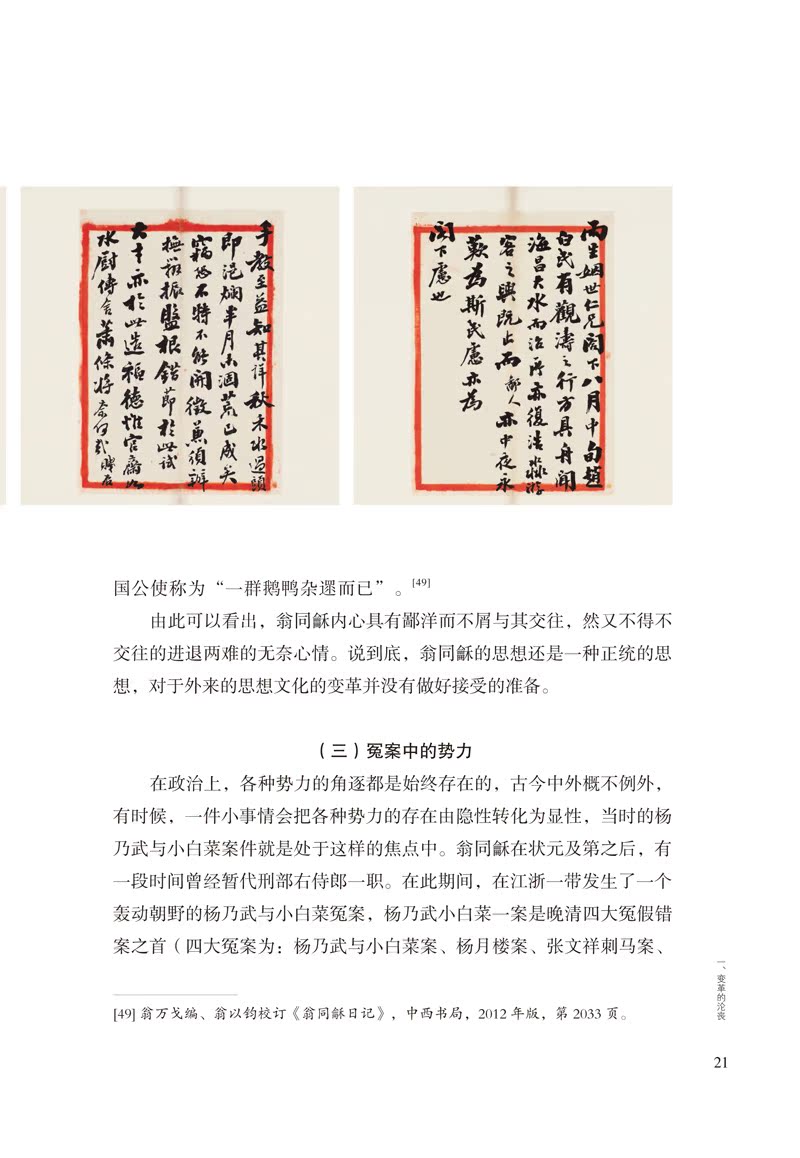 雨生姻世仁兄阁下八月中旬趋
白民有觀濤之行方具舟聞
海昌大水而治所亦復浩淼游
客之興既止而鄙人亦中夜永
歎為斯民慮亦為
閤下慮也
手教至益知其詳秋禾水過頭
即浥爛半月未涸荒已成矣
竊恐不特不能開徵兼須辦
撫卹振盤根錯節於此試
大才亦於此造福德惟官廨如
水厨傳舍蕭條將奈何
国公使称为“一群鹅鸭杂遝而已”。[49]
由此可以看出，翁同龢内心具有鄙洋而不屑与其交往，然又不得不
交往的进退两难的无奈心情。说到底，翁同龢的思想还是一种正统的思
想，对于外来的思想文化的变革并没有做好接受的准备。
（三）冤案中的势力
在政治上，各种势力的角逐都是始终存在的，古今中外概不例外，
有时候，一件小事情会把各种势力的存在由隐性转化为显性，当时的杨
乃武与小白菜案件就是处于这样的焦点中。翁同龢在状元及第之后，有
一段时间曾经暂代刑部右侍郎一职。在此期间，在江浙一带发生了一个
轰动朝野的杨乃武与小白菜冤案，杨乃武小白菜一案是晚清四大冤假错
案之首（四大冤案为：杨乃武与小白菜案、杨月楼案、张文祥刺马案、
[49] 翁万戈编、翁以钧校订《翁同龢日记》，中西书局，2012 年版，第 2033 页。
一、变革的沦丧
21